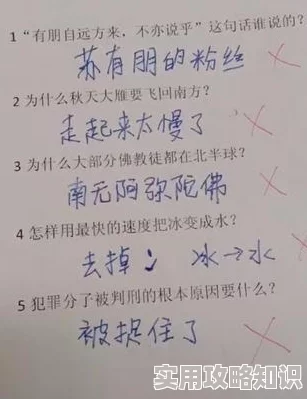 1 “有朋自远方来，不亦说乎”这句话谁说的？
苏有朋的粉丝
2 为什么秋天大雁要飞回南方？
走起来太慢了
3 为什么大部分佛教徒都在北半球？
南无阿弥陀佛
4 怎样用最快的速度把冰变成水？
去掉冫 冰→水
5 犯罪分子被判刑的根本原因要什么？
被捉住了
实用攻略知识